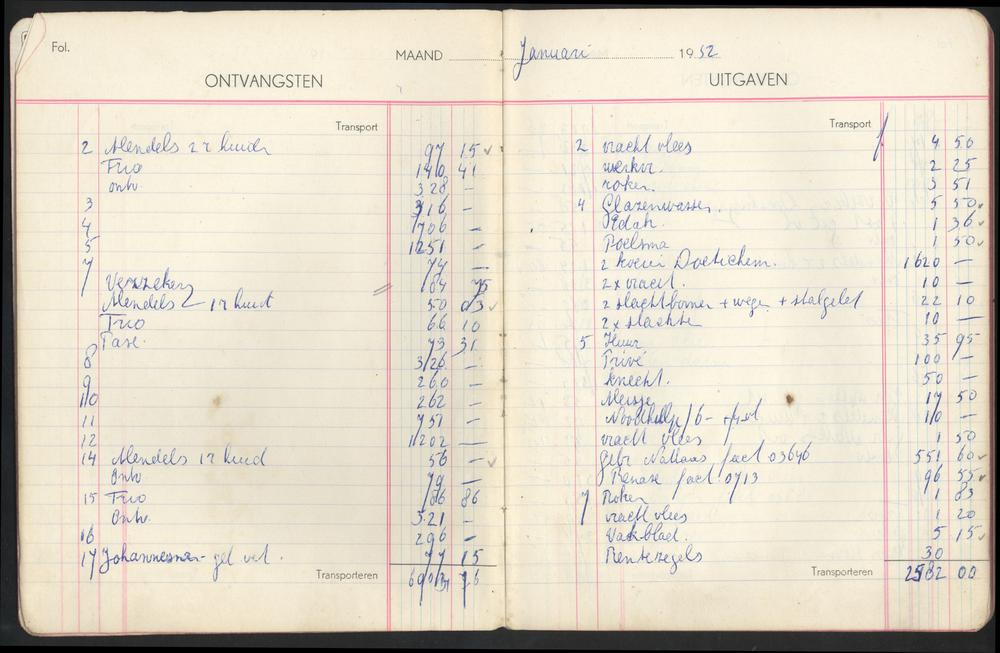 Fol.
MAAND Januari 1952
ONTVANGSTEN
Transport
2 Mendels 2 r huid 97 15
Trio 140 41
ontv. 328 —
3 316 —
4 706 —
5 1251 —
7 74 —
Verzekering 164 75
Mendels 1 r huid 50 03
Trio 66 10
Tase. 73 31
8 326 —
9 260 —
10 262 —
11 751 —
12 1202 —
14 Mendels 1 r huid 56 —
Ontv 79 —
15 Trio 86 86
Ontv. 521 —
16 296 —
17 gel vet. 77 15
Transporteren 76
UITGAVEN
Transport
2 vracht vlees 4 50
werkv. 2 25
roken. 3 51
4 Glazenwasser. 5 50
Edah. 1 36
Poelsma 1 50
2 koeien Doetichem. 1620 —
2 x vracht. 10 —
+ wegen + stalgeld 22 10
2 x slachten 10 —
5 Huur 35 95
Privé 100 —
knecht. 50 —
Meisje 17 50
Noodhulp 10 —
vracht vlees 1 50
Gebr fact 03646 551 60
fact 0713 96 55
7 Roken 1 83
vracht vlees 1 20
Vakblad. 5 15
Rentezegels 30
Transporteren 2582 00